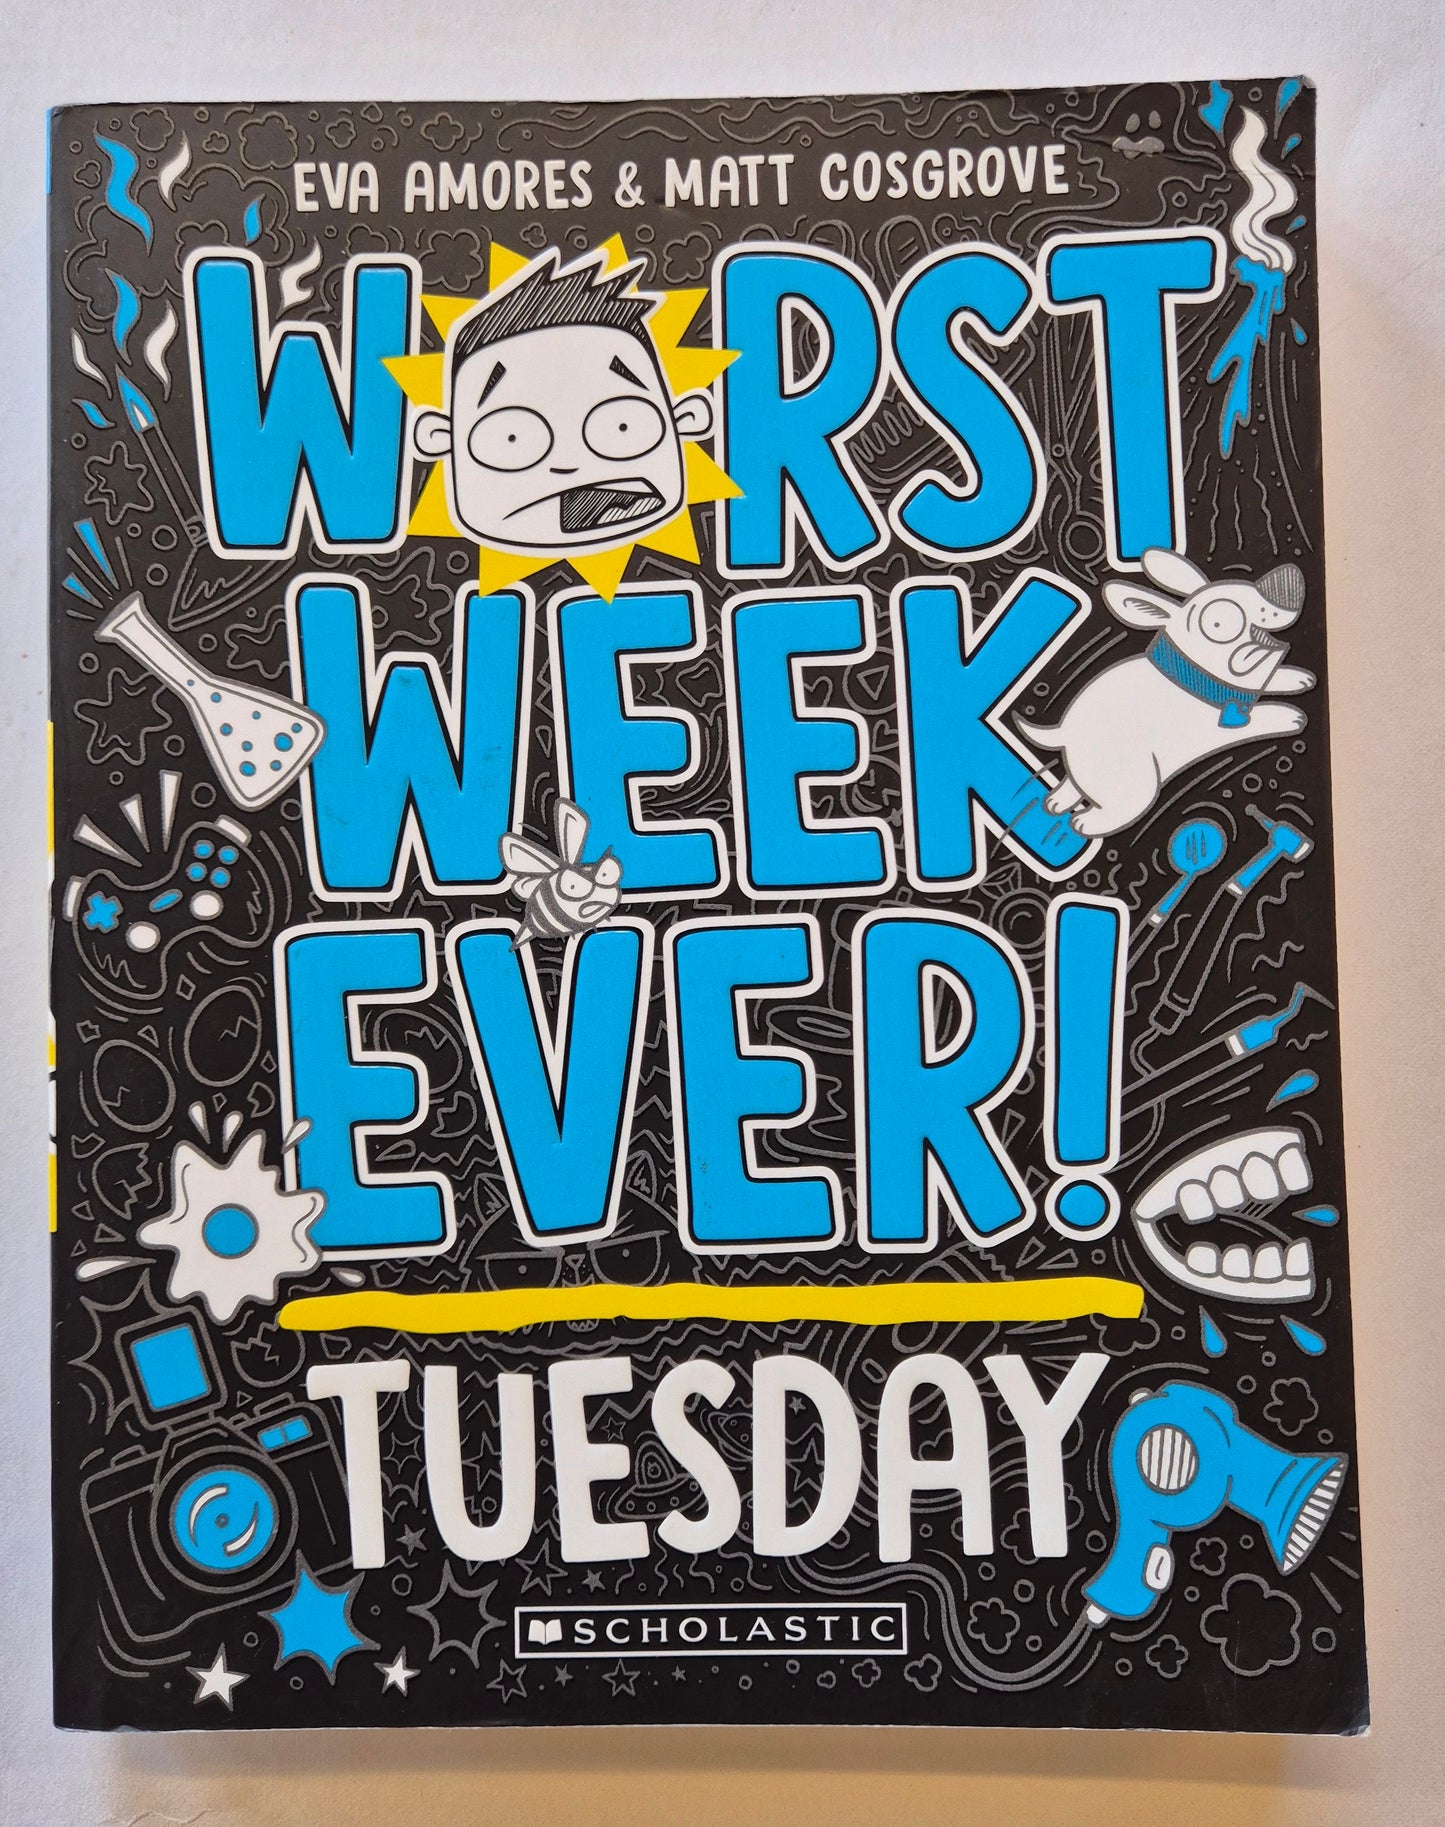 EVA AMORES & MATT COSGROVE
WORST
WEEK
EVER!
TUESDAY
SCHOLASTIC